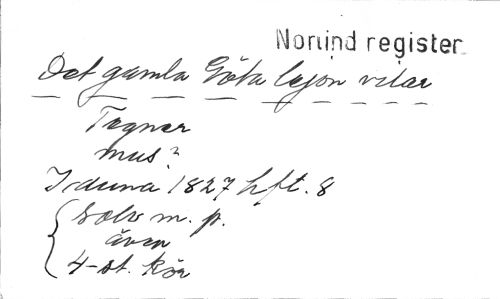 Norlind register
Det gamla Göta lejon vilar
Tegner
mus?
Iduna 1827 hft. 8
Solo m. p.
även
4-st. kör